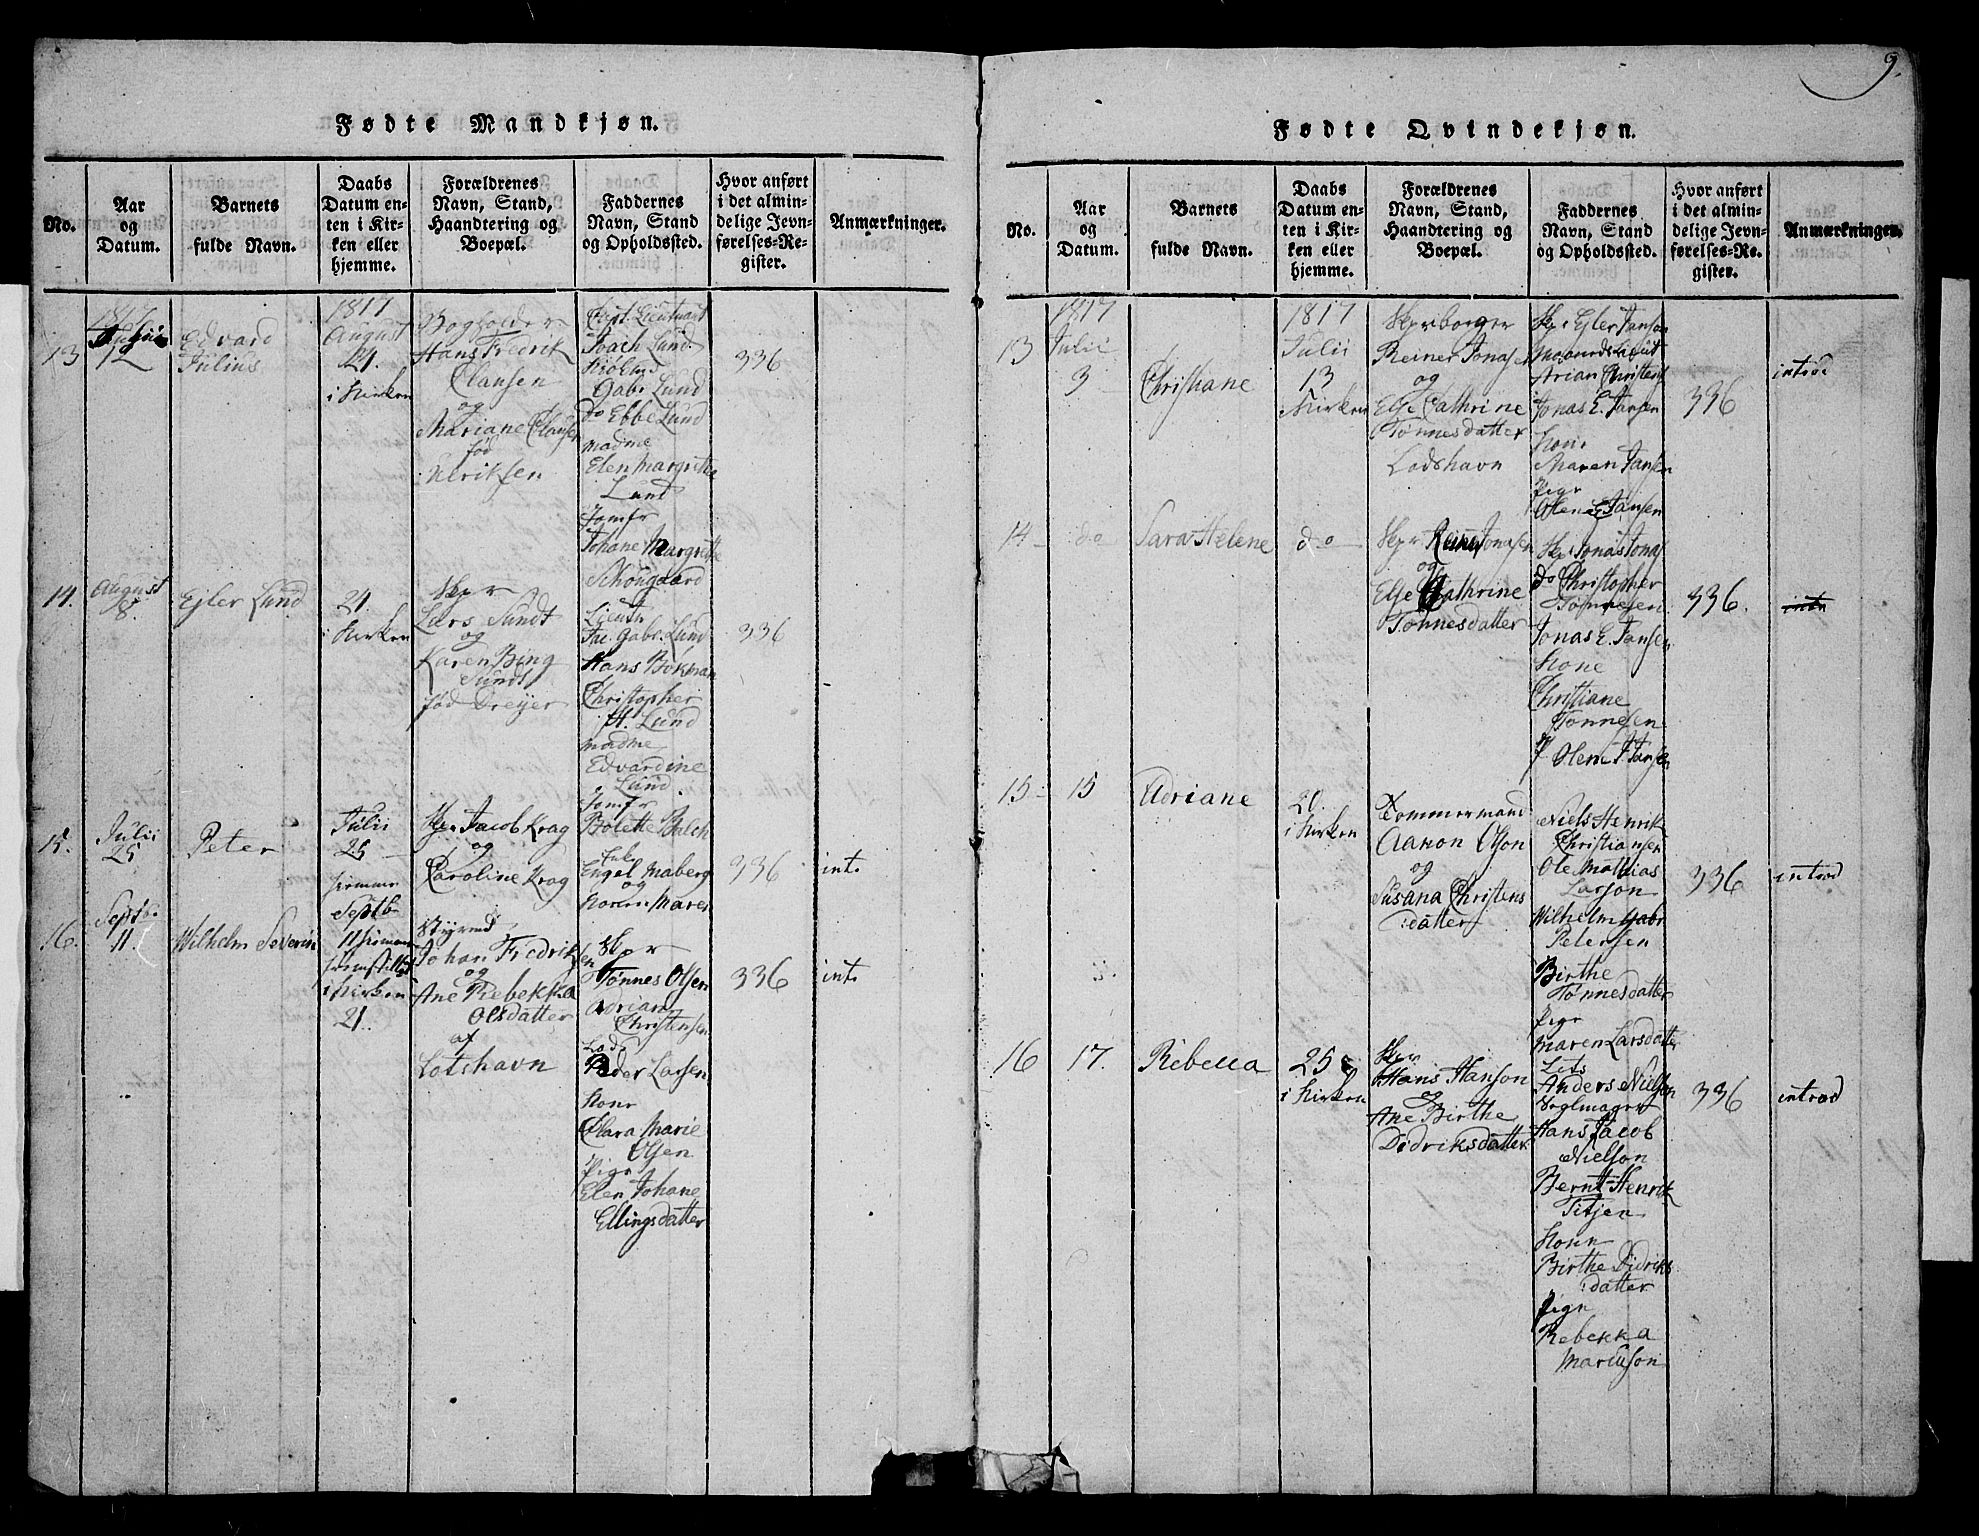 9.
Fødte Mandkjøn.
No.
Aar
og
Datum.
Barnets
fulde Navn.
Daabs
Datum en-
ten i Kir-
ken eller
hjemme.
Forældrenes
Navn, Stand,
Haandtering og
Boepæl.
Faddernes
Navn, Stand
og Opholdssted.
Hvor anført
i det almin-
delige Jevn-
førelses-Re-
gister.
Anmærkninger.
13
1817
12
Edvard
Julius
1817
August
21.
i Kirken
Bogholder
Hans Fredrik
Clausen
og
Mariane Clausen
fød
Ulriksen
Lieutnant
Joach Lund
Gabr. Lund
do Ebbe Lund
madme
Elen Margrethe
Lund
Jomfr
Johane Margrethe
Schougaard
336
14.
August
8.
Ejler Lund
21.
i Kirken
Skpr
Lars Sundt
og
Karen Bing
Sundt
fød Dreyer
Lieutn
Jac. Gabr. Lund
Hans Bokman
Christopher
H. Lund
madme
Edvardine
Lund
Jomfr
Bolette Balch
336
15.
Julii
25
Peter
Julii
25
hjemme
Skpr Jacob Krag
og
Caroline Krag
Enke
Engel Maberg
og
Konen Maren
336
int.
16.
Septb.
11.
Wilhelm Severin
Septb
11 hjemme
fremstillet
i Kirken
21.
Styrmd
Johan Fredriksen
og
Ane Rebekka
Olsdatter
af
Lotshavn
Skpr
Tønnes Olsen
Adrian
Christensen
Lods
Peder Larsen
Kone
Clara Marie
Olsen
Pige
Elen Johane
Ellingsdatter
336
int.
Fødte Qvindekjøn.
No.
Aar
og
Datum.
Barnets
fulde Navn.
Daabs
Datum en-
ten i Kir-
ken eller
hjemme.
Forældrenes
Navn, Stand,
Haandtering og
Boepæl.
Faddernes
Navn, Stand
og Opholdssted.
Hvor anført
i det almin-
delige Jevn-
førelses-Re-
gister.
Anmærkninger.
13
1817
Julii
3
Christiane
1817
Julii
13
i Kirken
Skpr borger
Reiner Jonasen
og
Else Cathrine
Tønnesdatter
Lodshavn
Skpr Ejler Jansen
Arian Christens
Jonas E. Jansen
Kone
Maren Jansen
Pige
Olene Jansen
336
introd
14
do
Sara Helene
do
Skpr Reiner Jonasen
og
Else Cathrine
Tønnesdatter
Skpr Jonas Jonas
do Christopher
Tønnesen
Jonas E. Jansen
Kone
Christiane
Tønnesen
P Olene J Jansen
336.
intr
15
15
Adriane
20.
i Kirken
Tømmermand
Aanon Olson
og
Susana Christens
:datter
Niels Henrik
Christiansen
Ole Mathias
Larson
Wilhelm Gabr
Petersen
Birthe
Tønnesdatter
Pige
Maren Larsdatter
336
introd
16
17.
Rebecca
25
i Kirken
Skpr
Hans Hanson
og
Ane Birthe
Didriksdatter
Lots
Anders Nielsen
Seglmager
Hans Jacob
Nielson
Bernt Henrik
Titjen
Kone
Birthe Didriks
:datter
Pige
Rebekka
Mariuson
336
introd